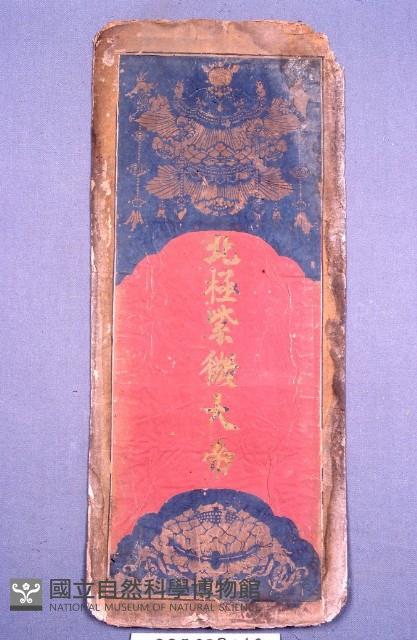 北極紫微大帝
國立自然科學博物館
NATIONAL MUSEUM OF NATURAL SCIENCE